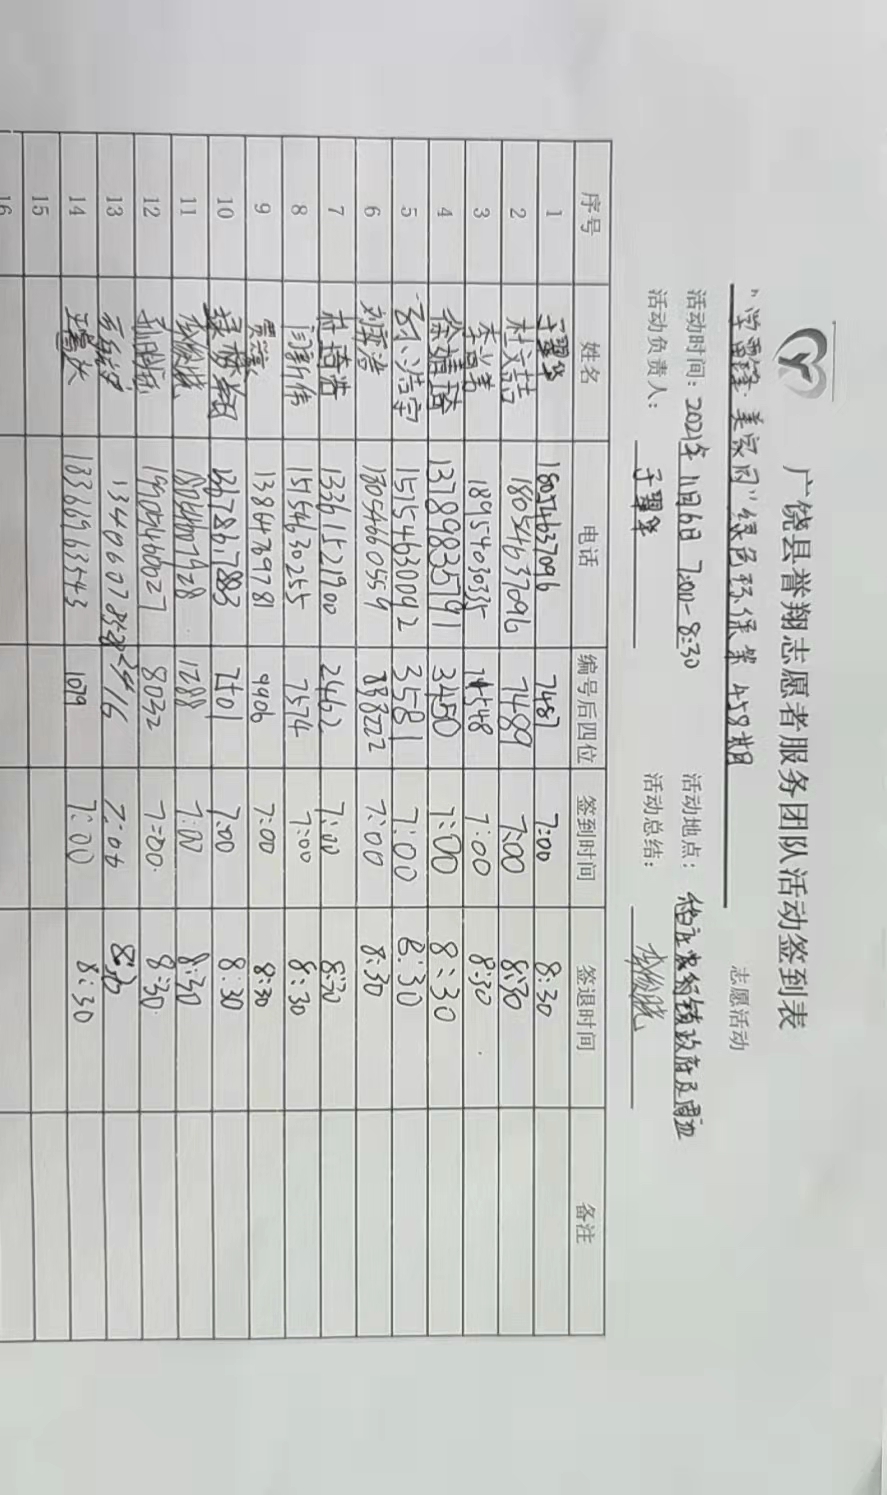 广饶县誉翔志愿者服务团队活动签到表
"学雷锋·美家园"绿色环保第458期 志愿活动
活动时间：2021年11月6日 7:00-8:30 活动地点：稻庄镇政府及周边
活动负责人：于翠华 活动总结：李俊晓
序号 姓名 电话 编号后四位 签到时间 签退时间 备注
1 于翠华 18054637096 7487 7:00 8:30
2 杜文喆 18054637096 7489 7:00 8:30
3 18954030335 7548 7:00 8:30
4 徐婧琦 13789835791 3450 7:00 8:30
5 15154630092 3581 7:00 8:30
6 刘 浩 13054660559 7:00 8:30
7 杜 浩 13361521900 2462 7:00 8:30
8 闫新伟 15154630255 7574 7:00 8:30
9 13864769781 9906 7:00 8:30
10 13678617883 7:00 8:30
11 李俊晓 18054607928 1288 7:00 8:30
12 19905460027 8032 7:00 8:30
13 2416 7:00 8:30
14 13366963543 1079 7:00 8:30
15
16